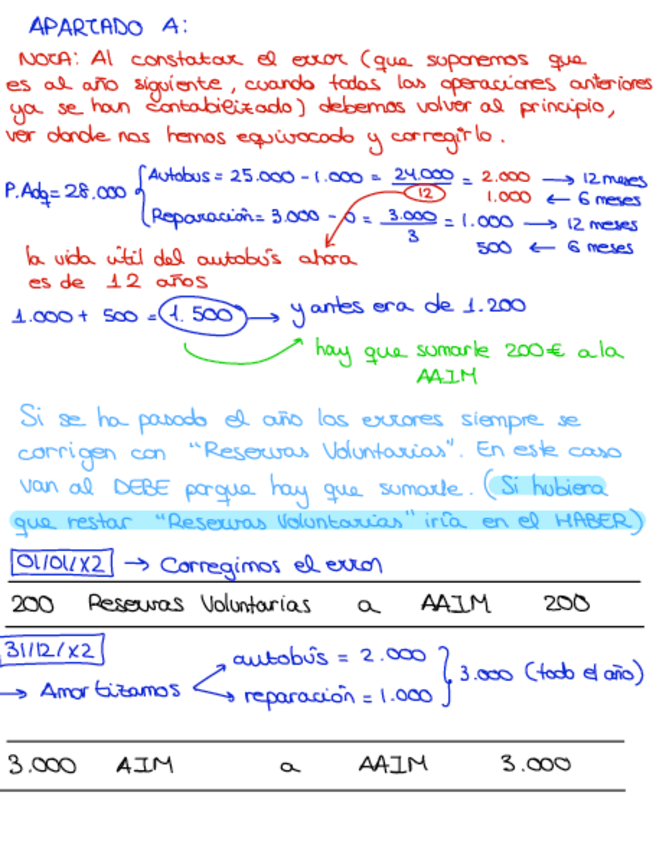 APARTADO A:
NOTA: Al constatar el error (que suponemos que
es al año siguiente, cuando todas las operaciones anteriores
ya se han contabilizado) debemos volver al principio,
ver donde nos hemos equivocado y corregirlo.
P.Adq= 28.000 { Autobus = 25.000 - 1.000 = 24.000 / 12 = 2.000 → 12 meses
1.000 ← 6 meses
Reparación = 3.000 - 0 = 3.000 / 3 = 1.000 → 12 meses
500 ← 6 meses
la vida útil del autobús ahora
es de 12 años
1.000 + 500 = 1.500 → y antes era de 1.200
hay que sumarle 200€ a la
AAIM
Si se ha pasado el año los errores siempre se
corrigen con "Reservas Voluntarias". En este caso
van al DEBE porque hay que sumarle. (Si hubiera
que restar "Reservas Voluntarias" iría en el HABER)
01/01/X2 → Corregimos el error
200 Reservas Voluntarias a AAIM 200
31/12/X2
→ Amortizamos
autobús = 2.000
reparación = 1.000
} 3.000 (todo el año)
3.000 AIM a AAIM 3.000